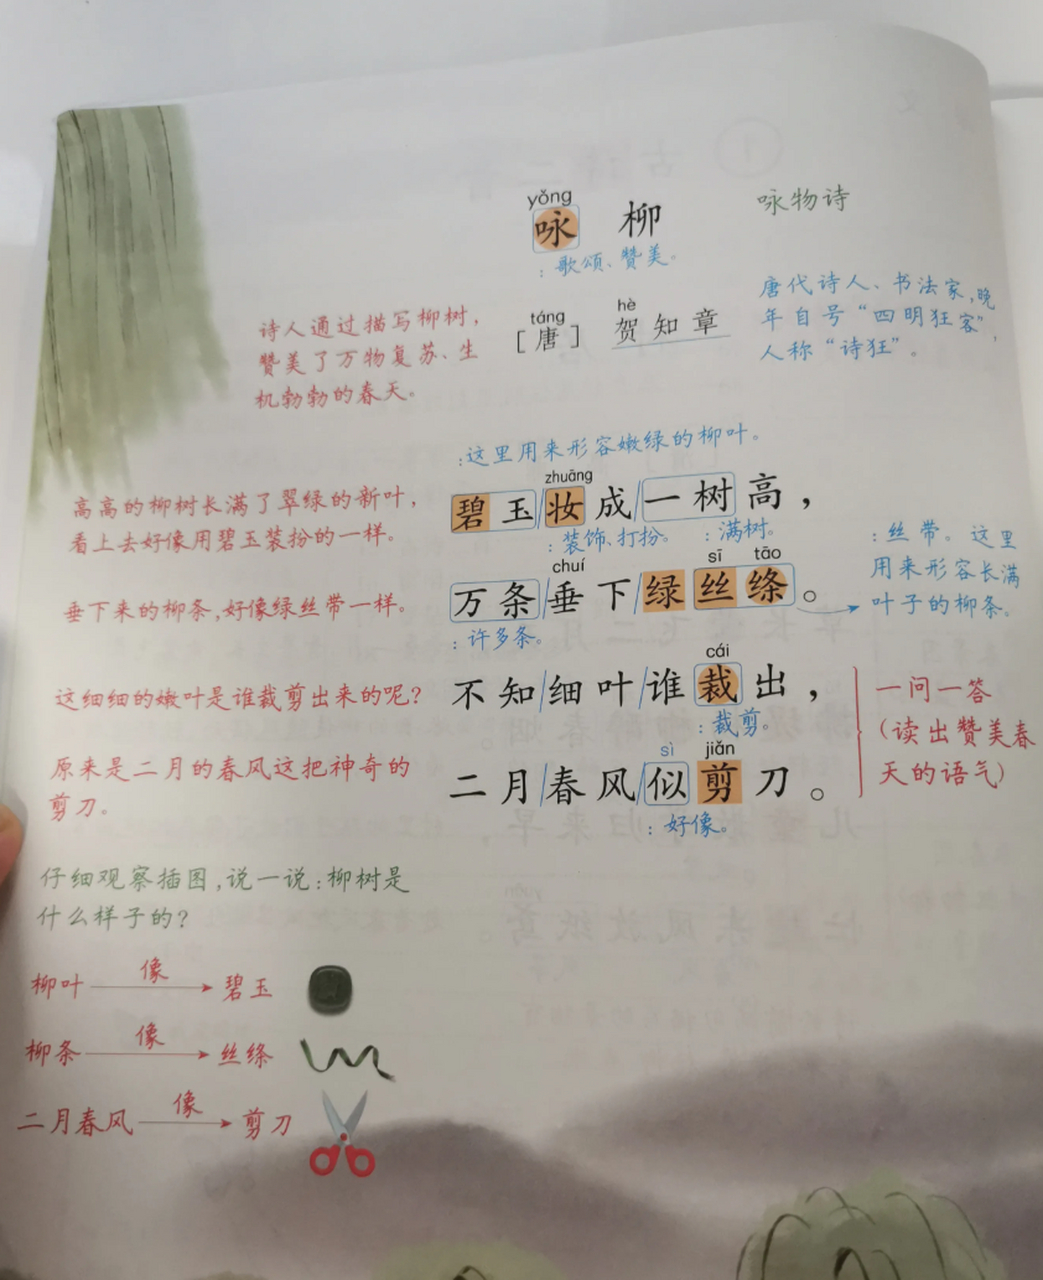 yǒng
咏 柳
咏物诗
：歌颂、赞美。
诗人通过描写柳树，
赞美了万物复苏、生
机勃勃的春天。
táng hè
［唐］ 贺知章
唐代诗人、书法家，晚
年自号“四明狂客”，
人称“诗狂”。
：这里用来形容嫩绿的柳叶。
高高的柳树长满了翠绿的新叶，
看上去好像用碧玉装扮的一样。
zhuāng
碧玉/妆成/一树高，
：装饰、打扮。 ：满树。
垂下来的柳条，好像绿丝带一样。
chuí sī tāo
万条/垂下/绿丝绦。
：许多条。
：丝带。这里
用来形容长满
叶子的柳条。
这细细的嫩叶是谁裁剪出来的呢？
cái
不知/细叶/谁裁出，
：裁剪。
原来是二月的春风这把神奇的
剪刀。
sì jiǎn
二月/春风/似剪刀。
：好像。
一问一答
（读出赞美春
天的语气）
仔细观察插图，说一说：柳树是
什么样子的？
柳叶 像 碧玉
柳条 像 丝绦
二月春风 像 剪刀